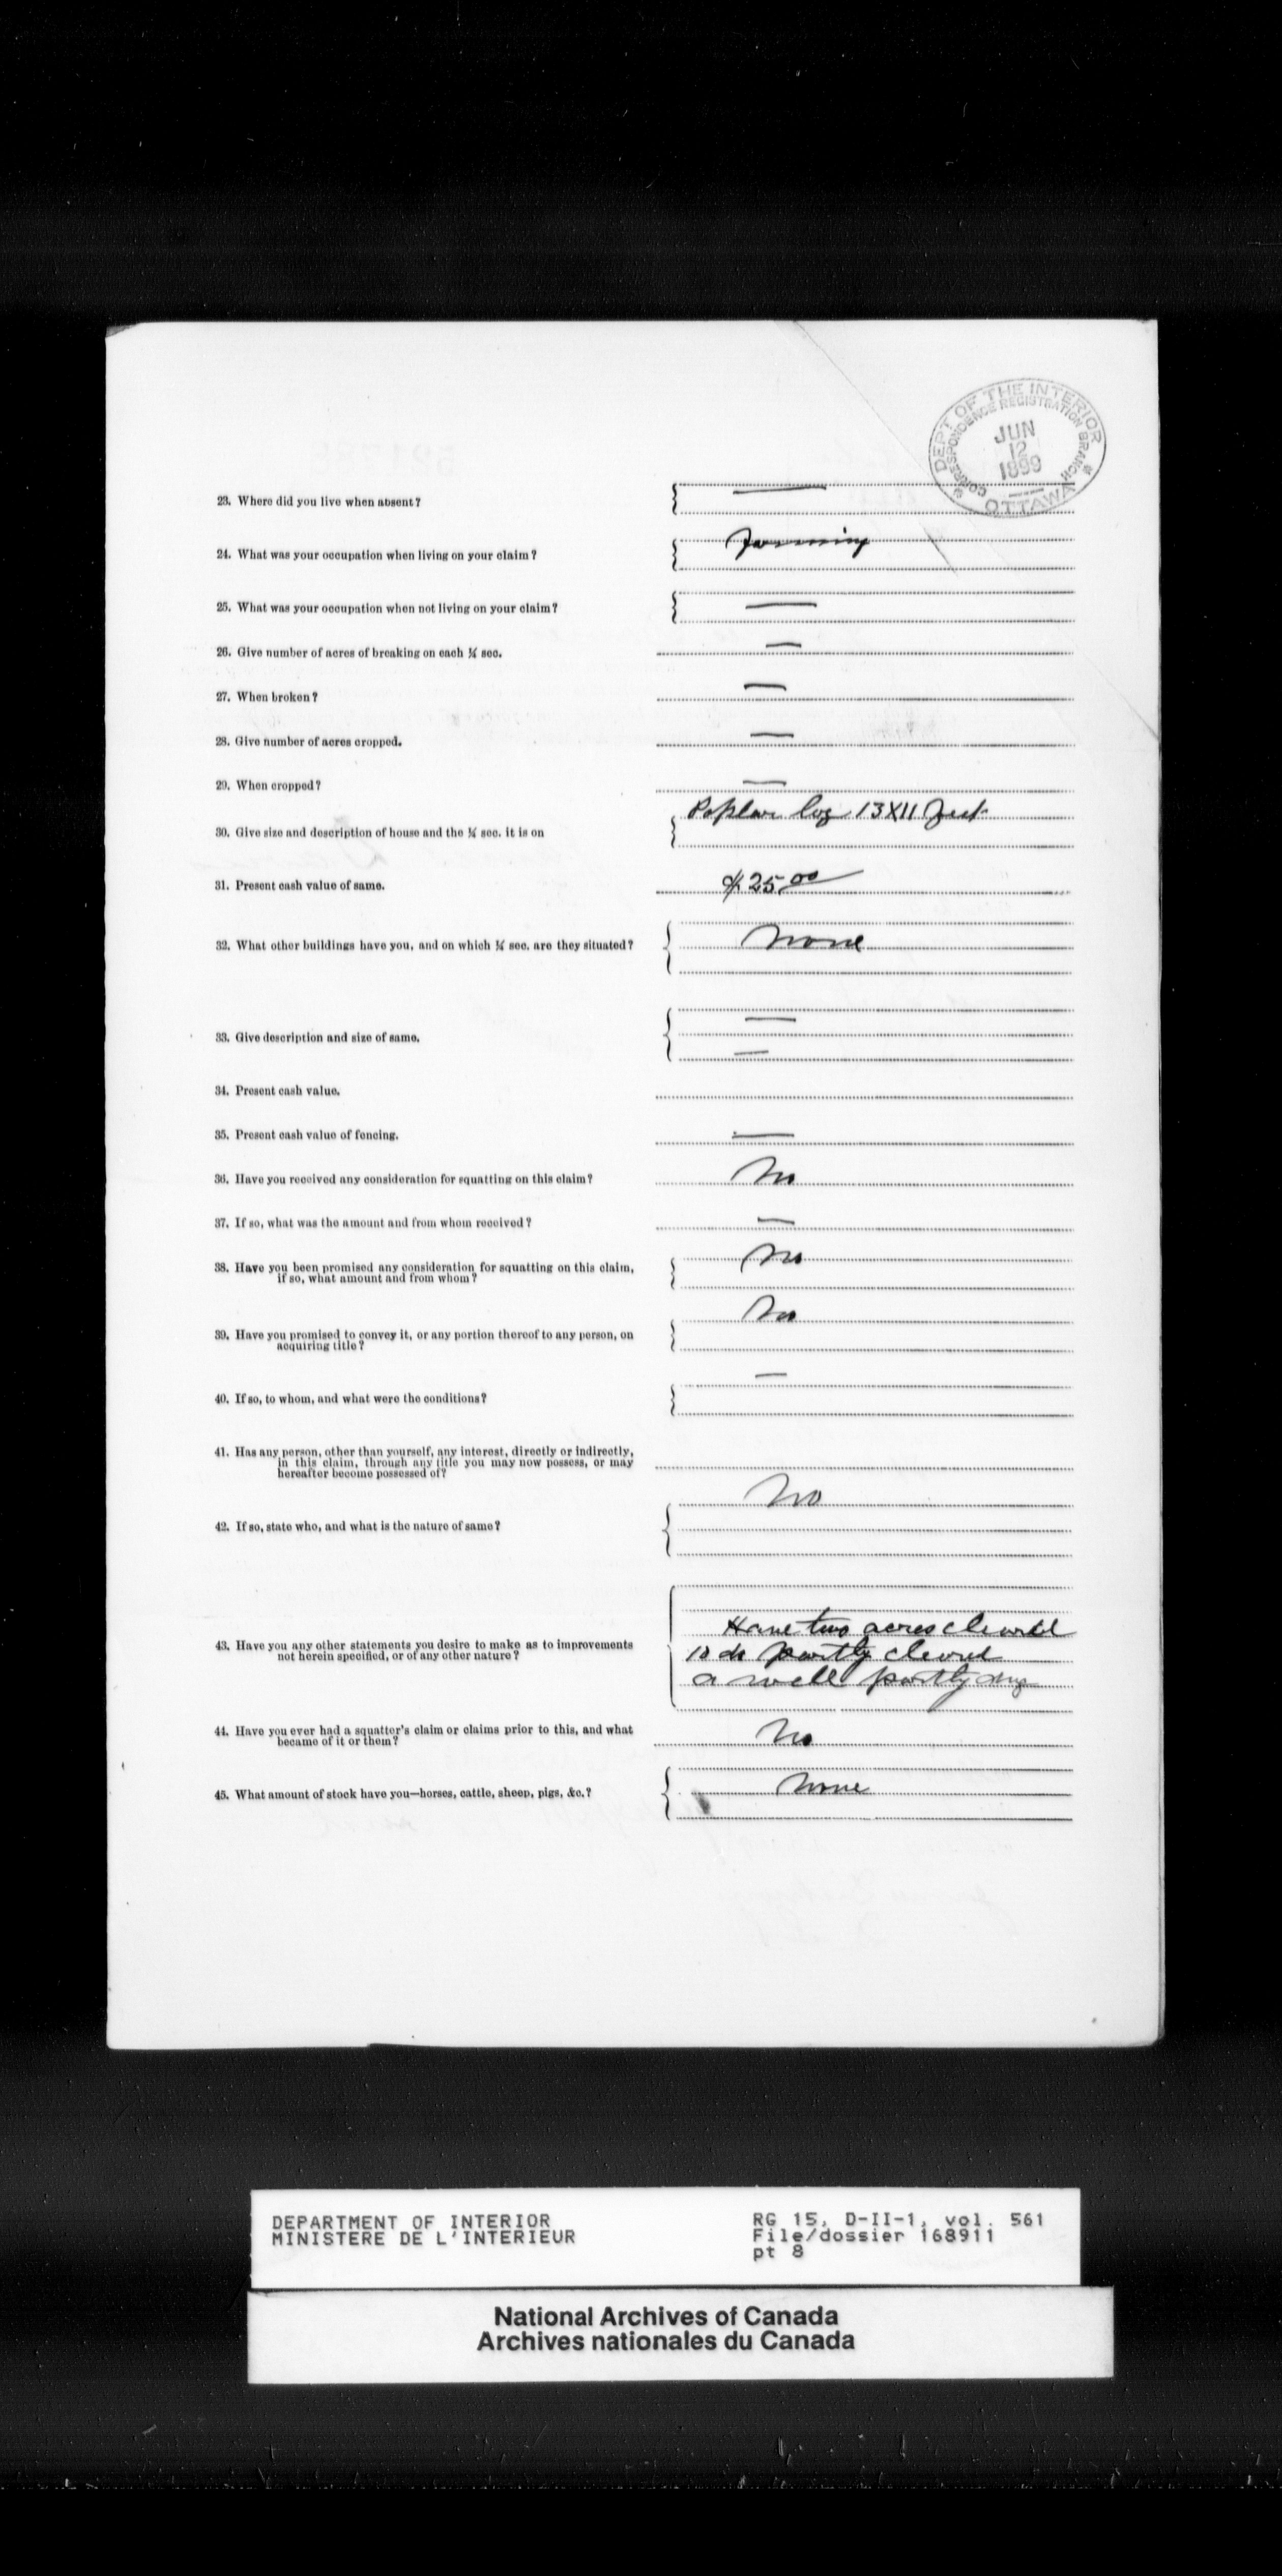 DEPT OF THE INTERIOR
CORRESPONDENCE REGISTRATION BRANCH
JUN
12
1899
OTTAWA
23. Where did you live when absent? —
24. What was your occupation when living on your claim? Farming
25. What was your occupation when not living on your claim? —
26. Give number of acres of breaking on each ¼ sec. —
27. When broken? —
28. Give number of acres cropped. —
29. When cropped? —
30. Give size and description of house and the ¼ sec. it is on Poplar log 13X11 feet
31. Present cash value of same. $25.00
32. What other buildings have you, and on which ¼ sec. are they situated? None
33. Give description and size of same. —
—
34. Present cash value.
35. Present cash value of fencing. —
36. Have you received any consideration for squatting on this claim? No
37. If so, what was the amount and from whom received? —
38. Have you been promised any consideration for squatting on this claim, No
if so, what amount and from whom?
39. Have you promised to convey it, or any portion thereof to any person, on No
acquiring title?
40. If so, to whom, and what were the conditions? —
41. Has any person, other than yourself, any interest, directly or indirectly,
in this claim, through any title you may now possess, or may
hereafter become possessed of?
No
42. If so, state who, and what is the nature of same?
43. Have you any other statements you desire to make as to improvements
not herein specified, or of any other nature?
Have two acres cleared
10 do partly cleared
a well partly dug
44. Have you ever had a squatter's claim or claims prior to this, and what No
became of it or them?
45. What amount of stock have you—horses, cattle, sheep, pigs, &c.? None
DEPARTMENT OF INTERIOR
MINISTERE DE L'INTERIEUR
RG 15, D-II-1, vol. 561
File/dossier 168911
pt 8
National Archives of Canada
Archives nationales du Canada